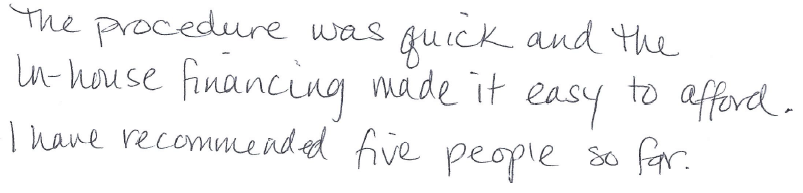 The procedure was quick and the
In-house financing made it easy to afford.
I have recommended five people so far.